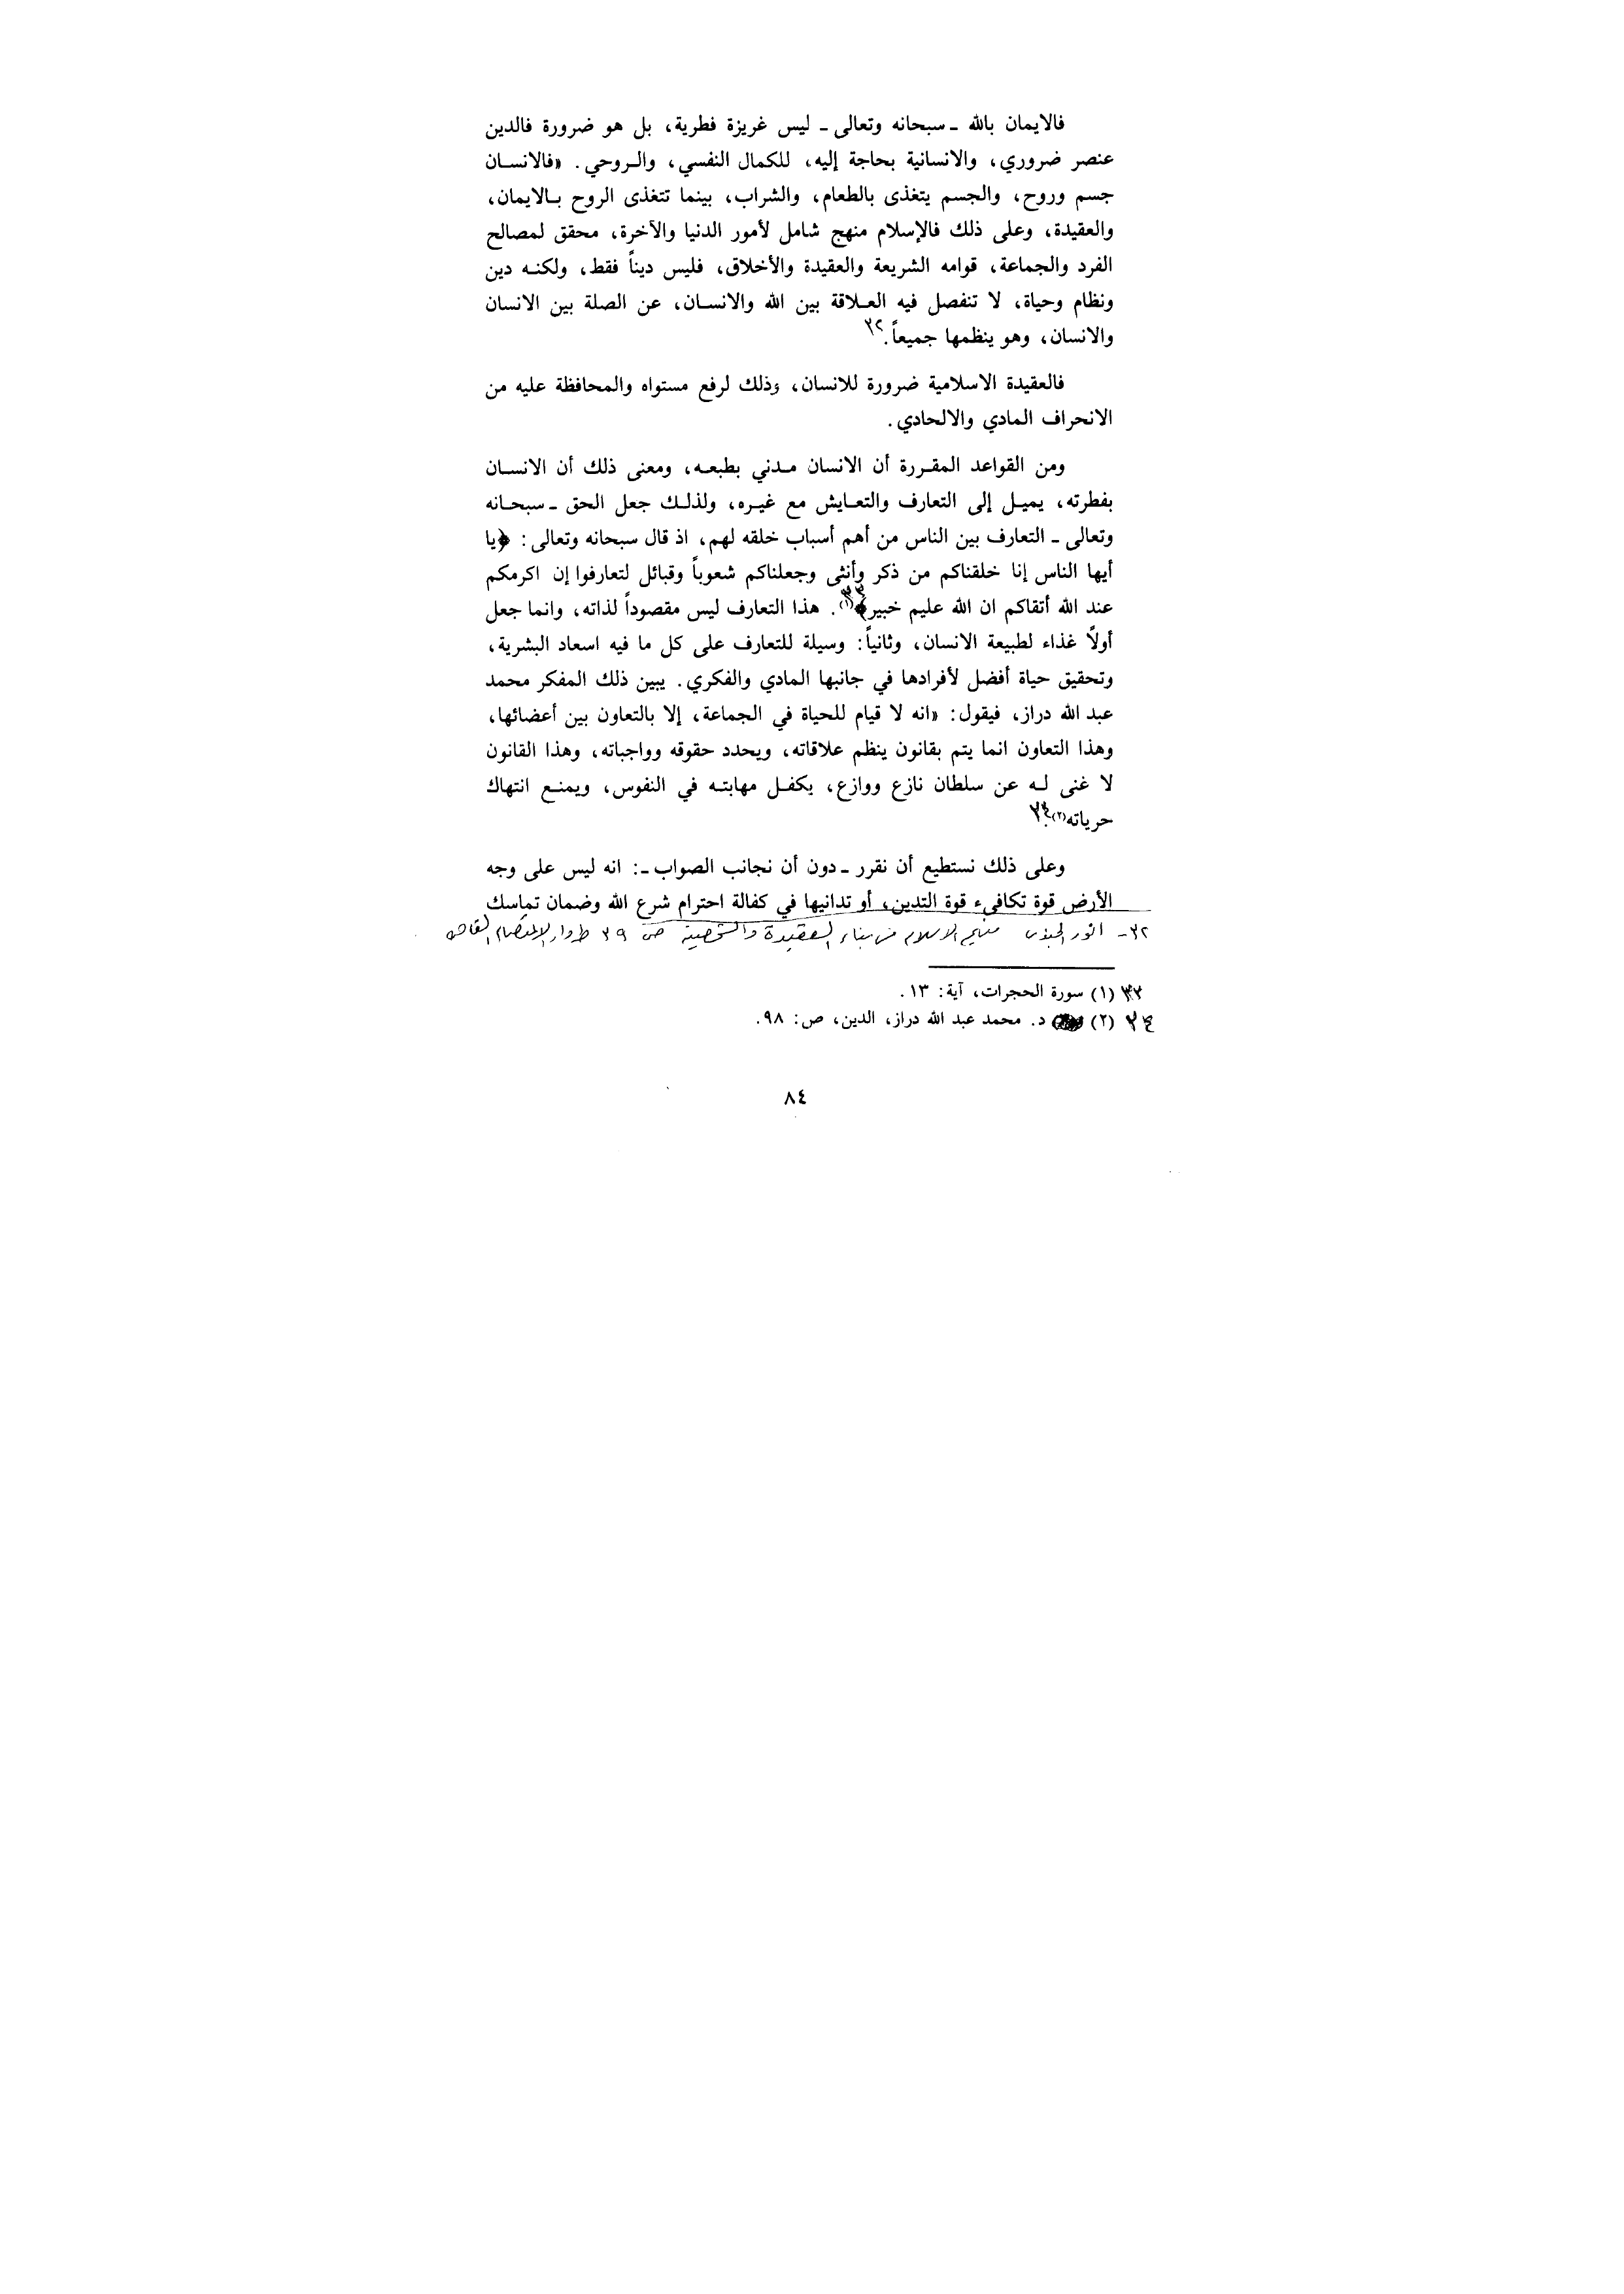 فالايمان بالله ـ سبحانه وتعالى ـ ليس غريزة فطرية، بل هو ضرورة فالدين
عنصر ضروري، والانسانية بحاجة إليه، للكمال النفسي، والـروحي. «فالانسـان
جسم وروح، والجسم يتغذى بالطعام، والشراب، بينما تتغذى الروح بـالايمان،
والعقيدة، وعلى ذلك فالإسلام منهج شامل لأمور الدنيا والآخرة، محقق لمصالح
الفرد والجماعة، قوامه الشريعة والعقيدة والأخلاق، فليس ديناً فقط، ولكنـه دين
ونظام وحياة، لا تنفصل فيه العـلاقة بين الله والانسـان، عن الصلة بين الانسان
والانسان، وهو ينظمها جميعاً. ٣٢
فالعقيدة الاسلامية ضرورة للانسان، وذلك لرفع مستواه والمحافظة عليه من
الانحراف المادي والالحادي.
ومن القواعد المقـررة أن الانسان مـدني بطبعـه، ومعنى ذلك أن الانسـان
بفطرته، يميـل إلى التعارف والتعـايش مع غيـره، ولذلـك جعل الحق ـ سبحـانه
وتعالى ـ التعارف بين الناس من أهم أسباب خلقه لهم، اذ قال سبحانه وتعالى: ﴿يا
أيها الناس إنا خلقناكم من ذكر وأنثى وجعلناكم شعوباً وقبائل لتعارفوا إن اكرمكم
عند الله أتقاكم ان الله عليم خبير﴾(١) ٣٣. هذا التعارف ليس مقصوداً لذاته، وانما جعل
أولاً غذاء لطبيعة الانسان، وثانياً: وسيلة للتعارف على كل ما فيه اسعاد البشرية،
وتحقيق حياة أفضل لأفرادها في جانبها المادي والفكري. يبين ذلك المفكر محمد
عبد الله دراز، فيقول: «انه لا قيام للحياة في الجماعة، إلا بالتعاون بين أعضائها،
وهذا التعاون انما يتم بقانون ينظم علاقاته، ويحدد حقوقه وواجباته، وهذا القانون
لا غنى لـه عن سلطان نازع ووازع، يكفـل مهابتـه في النفوس، ويمنـع انتهاك
حرياته(٢). ٣٤
وعلى ذلك نستطيع أن نقرر ـ دون أن نجانب الصواب ـ: انه ليس على وجه
الأرض قوة تكافىء قوة التدين، أو تدانيها في كفالة احترام شرع الله وضمان تماسك
٣٢ - انور الجندي منهج الاسلام في بناء العقيدة والشخصية ص ٣٩ ط دار الاعتصام القاهرة
٣٣ (١) سورة الحجرات، آية: ١٣.
٣٤ (٢) د. محمد عبد الله دراز، الدين، ص: ٩٨.
٨٤